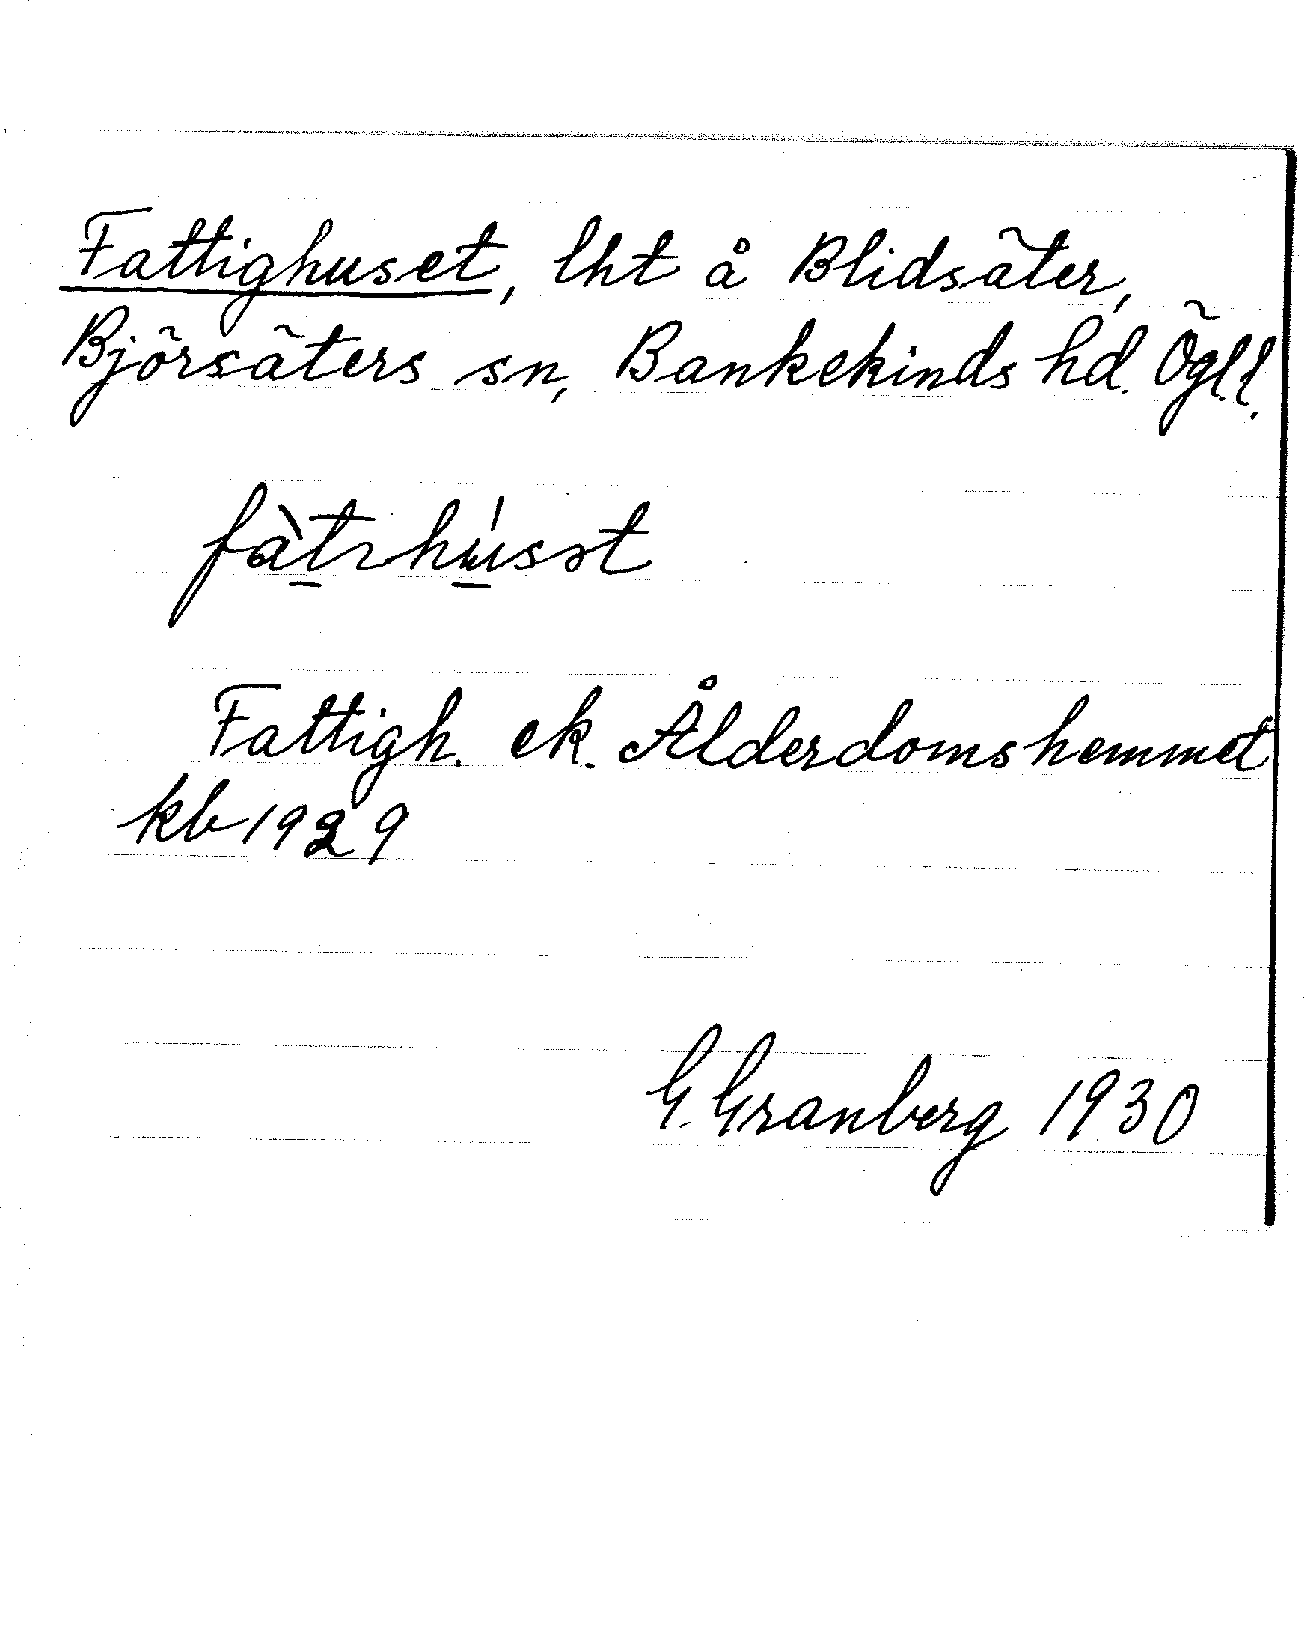 Fattighuset, lht å Blidsäter,
Björsäters sn, Bankekinds hd. Ögll.
fàtıhúsət
Fattigh. ek. Ålderdomshemmet
kb 1929
G. Granberg 1930